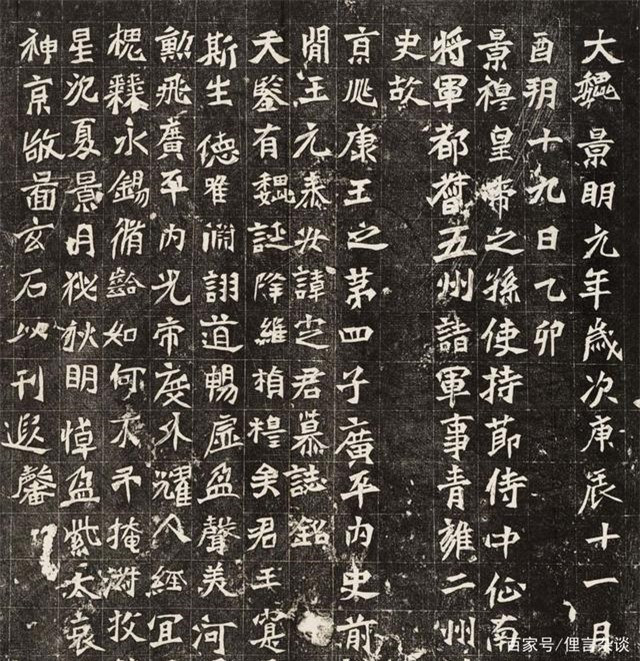 大魏景明元年歲次庚辰十一月
酉朔十九日乙卯
景穆皇帝之孫使持節侍中征南
將軍都督五州諸軍事青雍二州
史故
京兆康王之第四子廣平內史前
閒王元泰安諱定君墓誌銘
天鑒有魏誕降維楨穆矣君王寔
斯生德唯淵詡道暢虛盈聲美河
勳飛廣平內光帝度外耀人經宜
槐永錫脩齡如何不弔掩
星沈夏景月秘秋明悼盈紫太哀
神京敬圖玄石以刊遐馨
百家号/俚言杂谈